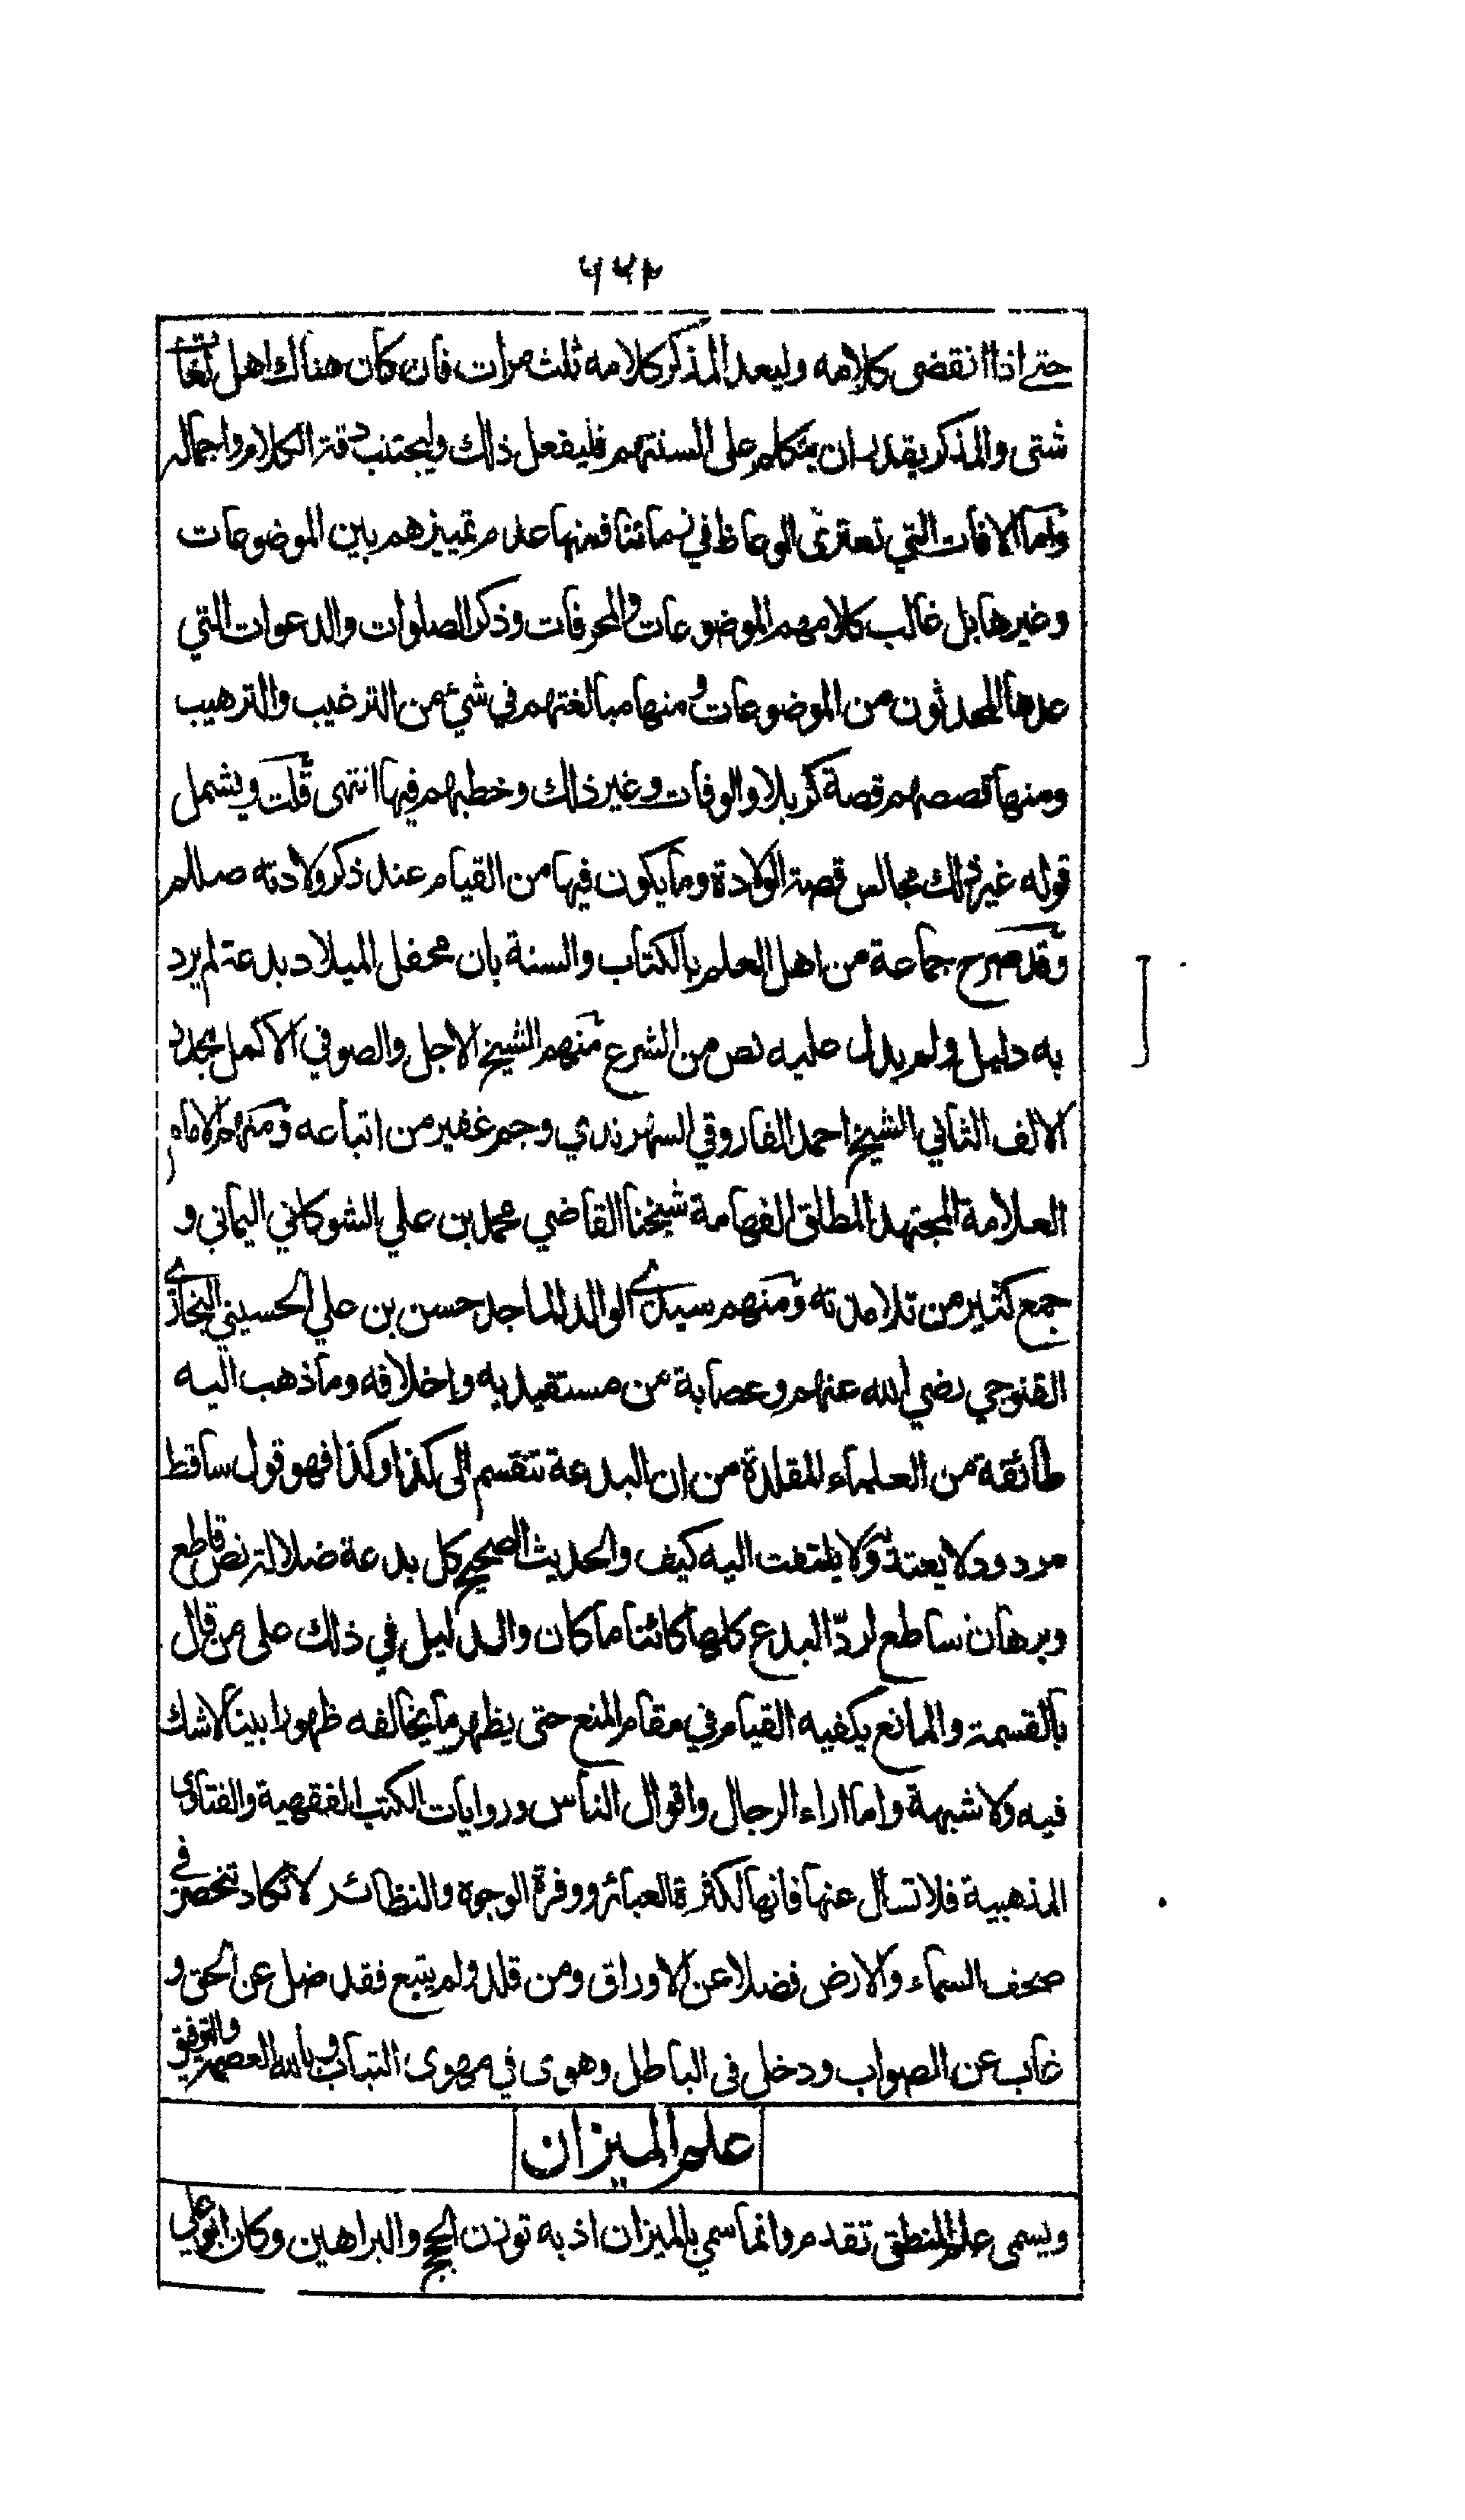 ٦٦٢
حتى اذا انقضى كلامه وليعد المذكر كلامه ثلث مرات فان كان هناك اهل لغات
شتى والمذكر يقدر ان يتكلم على السنتهم فليفعل ذلك وليجتنب دقة الكلام واجماله
واما الافات التي تعترى الوعاظ في زماننا فمنها عدم تمييزهم بين الموضوعات
وغيرها بل غالب كلامهم الموضوعات والمحرفات وذكر الصلوات والدعوات التي
عدها المحدثون من الموضوعات ومنها مبالغتهم في شئ من الترغيب والترهيب
ومنها قصصهم قصة كربلا والوفات وغير ذلك وخطبهم فيها انتهى قلت ويشمل
قوله غير ذلك مجالس قصة الولادة وما يكون فيها من القيام عند ذكر ولادته صللم
وقد صرح جماعة من اهل العلم بالكتاب والسنة بان محفل الميلاد بدعة لم يرد
به دليل ولم يدل عليه نص من الشرع منهم الشيخ الاجل والصوفي الاكمل مجدد
الالف الثاني الشيخ احمد الفاروقي السهرندي وجم غفير من اتباعه ومنهم الامام
العلامة المجتهد المطلق الفهامة شيخنا القاضي محمد بن علي الشوكاني اليماني و
جمع كثير من تلامذته ومنهم سيدي الوالد الماجد حسن بن علي الحسيني البخاري
القنوجي رضي الله عنهم وعصابة من مستفيديه واخلافه وما ذهب اليه
طائفة من العلماء المقلدة من ان البدعة تنقسم الى كذا وكذا فهو قول ساقط
مردود لا يعتد به ولا يلتفت اليه كيف والحديث الصحيح كل بدعة ضلالة نص قاطع
وبرهان ساطع لردّ البدع كلها كائنا ما كان والدليل في ذلك على من قال
بالقسمة والمانع يكفيه القيام في مقام المنع حتى يظهر ما يخالفه ظهورا بينا لا شك
فيه ولا شبهة واما اراء الرجال واقوال الناس وروايات الكتب الفقهية والفتاوى
المذهبية فلا تسأل عنها فانها لكثرة العبائر ووفرة الوجوه والنظائر لا تكاد تنحصر في
صحف السماء والارض فضلا عن الاوراق ومن قلد ولم يتبع فقد ضل عن الحق و
غاب عن الصواب ودخل فى الباطل وهوى في مهوى التباب وبالله العصمة والتوفيق
علم الميزان
ويسمى علم المنطق تقدم وانما سمي بالميزان اذ به توزن الحجج والبراهين وكان ابو علي